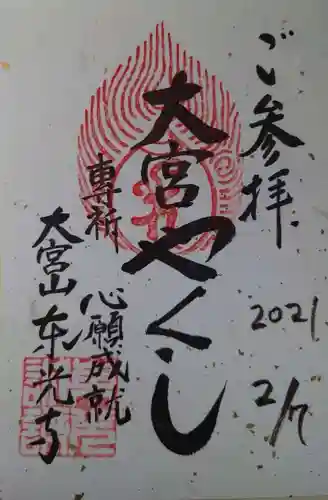 ご参拝
2021
2/7
大宮やくし
專祈
心願成就
大宮山東光寺